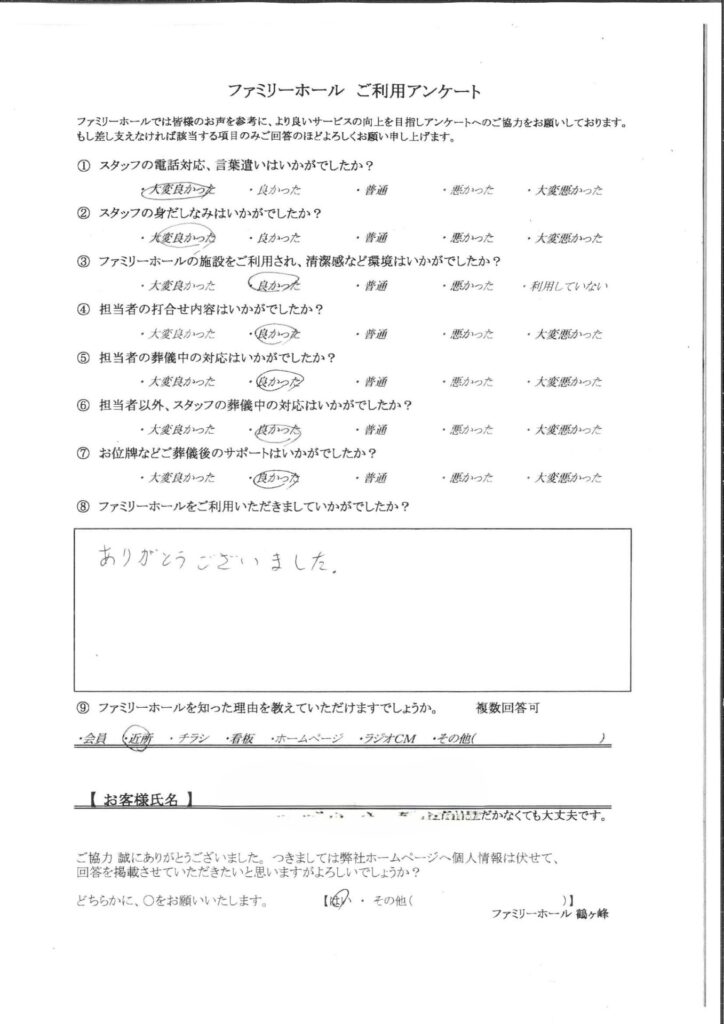 ファミリーホール ご利用アンケート
ファミリーホールでは皆様のお声を参考に、より良いサービスの向上を目指しアンケートへのご協力をお願いしております。
もし差し支えなければ該当する項目のみご回答のほどよろしくお願い申し上げます。
① スタッフの電話対応、言葉遣いはいかがでしたか？
・大変良かった ・良かった ・普通 ・悪かった ・大変悪かった
② スタッフの身だしなみはいかがでしたか？
・大変良かった ・良かった ・普通 ・悪かった ・大変悪かった
③ ファミリーホールの施設をご利用され、清潔感など環境はいかがでしたか？
・大変良かった ・良かった ・普通 ・悪かった ・利用していない
④ 担当者の打合せ内容はいかがでしたか？
・大変良かった ・良かった ・普通 ・悪かった ・大変悪かった
⑤ 担当者の葬儀中の対応はいかがでしたか？
・大変良かった ・良かった ・普通 ・悪かった ・大変悪かった
⑥ 担当者以外、スタッフの葬儀中の対応はいかがでしたか？
・大変良かった ・良かった ・普通 ・悪かった ・大変悪かった
⑦ お位牌などご葬儀後のサポートはいかがでしたか？
・大変良かった ・良かった ・普通 ・悪かった ・大変悪かった
⑧ ファミリーホールをご利用いただきましていかがでしたか？
ありがとうございました.
⑨ ファミリーホールを知った理由を教えていただけますでしょうか。 複数回答可
・会員 ・近所 ・チラシ ・看板 ・ホームページ ・ラジオCM ・その他( )
【 お客様氏名 】
だかなくても大丈夫です。
ご協力 誠にありがとうございました。つきましては弊社ホームページへ個人情報は伏せて、
回答を掲載させていただきたいと思いますがよろしいでしょうか？
どちらかに、○をお願いいたします。 【はい ・ その他( )】
ファミリーホール 鶴ヶ峰